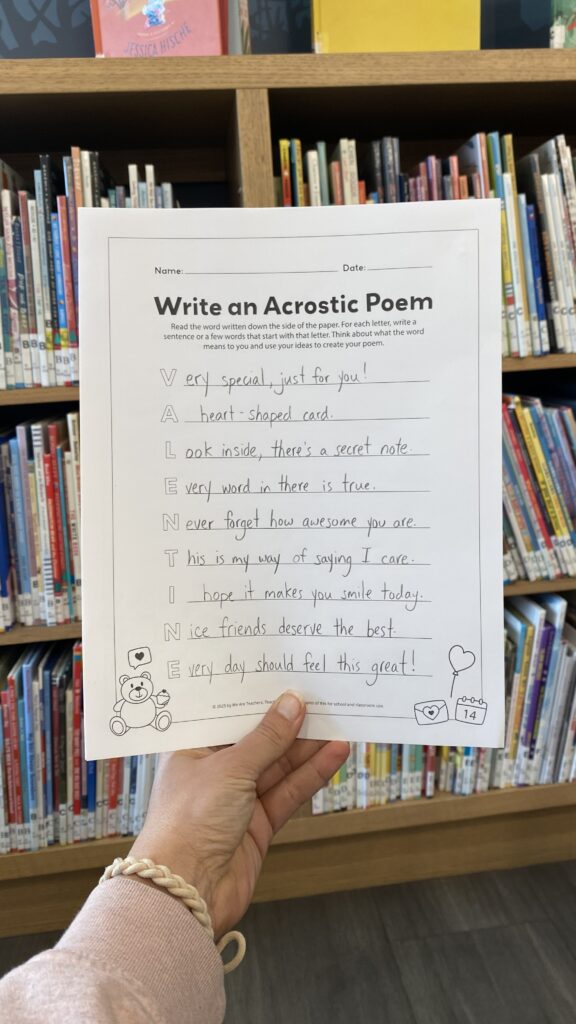 JESSICA HISCHE
Name:
Date:
Write an Acrostic Poem
Read the word written down the side of the paper. For each letter, write a
sentence or a few words that start with that letter. Think about what the word
means to you and use your ideas to create your poem.
Very special, just for you!
A heart-shaped card.
Look inside, there's a secret note.
Every word in there is true.
Never forget how awesome you are.
This is my way of saying I care.
I hope it makes you smile today.
Nice friends deserve the best.
Every day should feel this great!
© 2025 by We Are Teachers.
of this for school and classroom use.
14